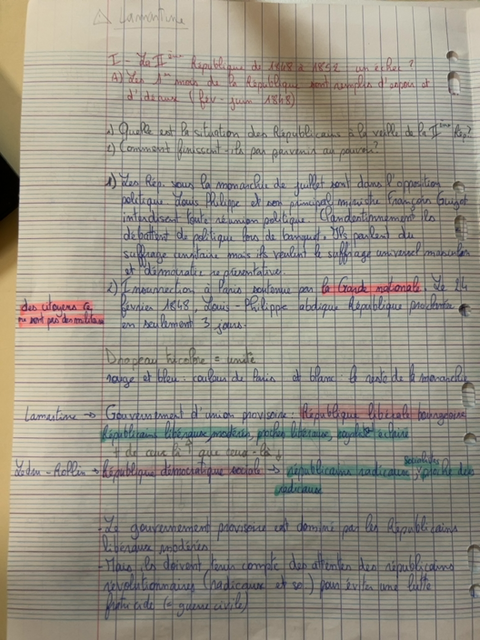 ⚠ Lamartine
I - La IIème République de 1848 à 1852 un échec ?
A) Les 1ers mois de la République sont remplis d'espoir et
d' (fév - juin 1848)
1) Quelle est la situation des Républicains à la veille de la IIème Rép?
2) Comment finissent-ils par parvenir au pouvoir?
1) Les Rép. sous la monarchie de juillet sont dans l'opposition
politique Louis Philippe et son principal ministre François Guizot
interdisent toute réunion politique. Clandestinement ils
débattent de politique lors de banquet. Ils parlent du
suffrage censitaire mais ils veulent le suffrage universel masculin
et démocratie représentative.
2) Insurrection à Paris soutenue par la Garde nationale. Le 24
février 1848, Louis-Philippe abdique République proclamée
en seulement 3 jours.
des citoyens
ne sont pas des militaires
Drapeau tricolore = unité
rouge et bleu : couleurs de Paris et blanc : le reste de la monarchie
Lamartine → Gouvernement d'union provisoire République libérale bourgeoise
Républicains libéraux, modérés, proches libéraux,
≠ de ceux-là que ceux-là
Ledru-Rollin → République démocratique sociale → républicains radicaux, proche des
socialistes
radicaux
- Le gouvernement provisoire est dominé par les Républicains
libéraux modérés.
- Mais, ils doivent tenir compte des attentes des républicains
révolutionnaires (radicaux et so.) pour éviter une lutte
fratricide (= guerre civile)